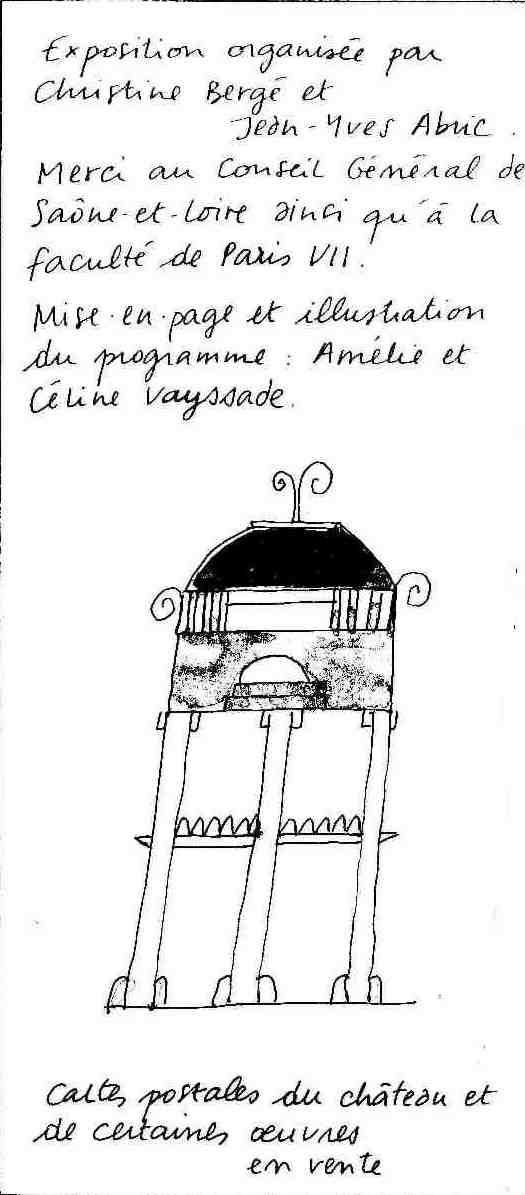 Exposition organisée par
Christine Bergé et
Jean-Yves Abric.
Merci au Conseil Général de
Saône-et-Loire ainsi qu'à la
faculté de Paris VII.
Mise-en-page et illustration
du programme : Amélie et
Céline Vayssade.
Cartes postales du château et
de certaines œuvres
en vente